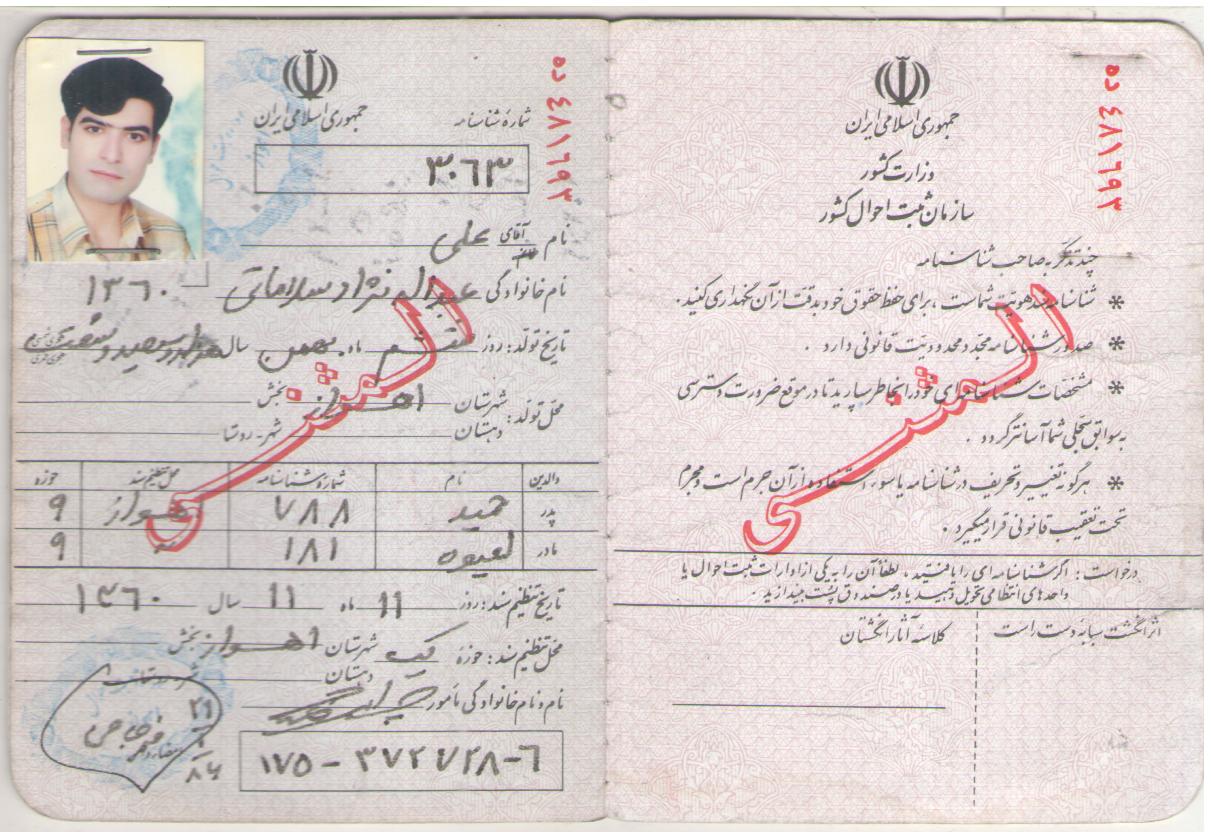 ده ٤٨١٦٩٣
جمهوری اسلامی ایران
وزارت کشور
سازمان ثبت احوال کشور
چند تذکر به صاحب شناسنامه
* شناسنامه سند هویت شماست ، برای حفظ حقوق خود بدقت از آن نگهداری کنید .
* صدور شناسنامه مجدد محدودیت قانونی دارد .
* مشخصات شناسنامه‌ای خود را بخاطر بسپارید تا در موقع ضرورت دسترسی
به سوابق سجلی شما آسانتر گردد .
* هرگونه تغییر و تحریف در شناسنامه یا سوء استفاده از آن جرم است و مجرم
تحت تعقیب قانونی قرار میگیرد .
المثنی
درخواست : اگر شناسنامه ای را یافتید ، لطفاً آن را به یکی از ادارات ثبت احوال یا
واحدهای انتظامی تحویل دهید یا در صندوق پست بیندازید .
اثر انگشت سبابه دست راست
کلاسه آثار انگشتان
ده ٤٨١٦٩٣
جمهوری اسلامی ایران
شمارهٔ شناسنامه
۳۰۶۳
نام آقای علی
نام خانوادگی سلاماتی ۱۳۶۰
تاریخ تولد : روز ماه بهمن سال هزار و سیصد و شصت
محل تولد : شهرستان اهواز بخش
دهستان شهر - روستا
المثنی
والدین نام شمارهٔ شناسنامه محل تنظیم سند حوزه
پدر حمید ۷۸۸ اهواز ۹
مادر ۱۸۱ ۹
تاریخ تنظیم سند : روز ۱۱ ماه ۱۱ سال ۱۳۶۰
محل تنظیم سند : حوزه یک شهرستان اهواز بخش
دهستان
نام و نام خانوادگی مأمور
۱۷۵ - ۳۷۲۴۷۲۸ - ۶